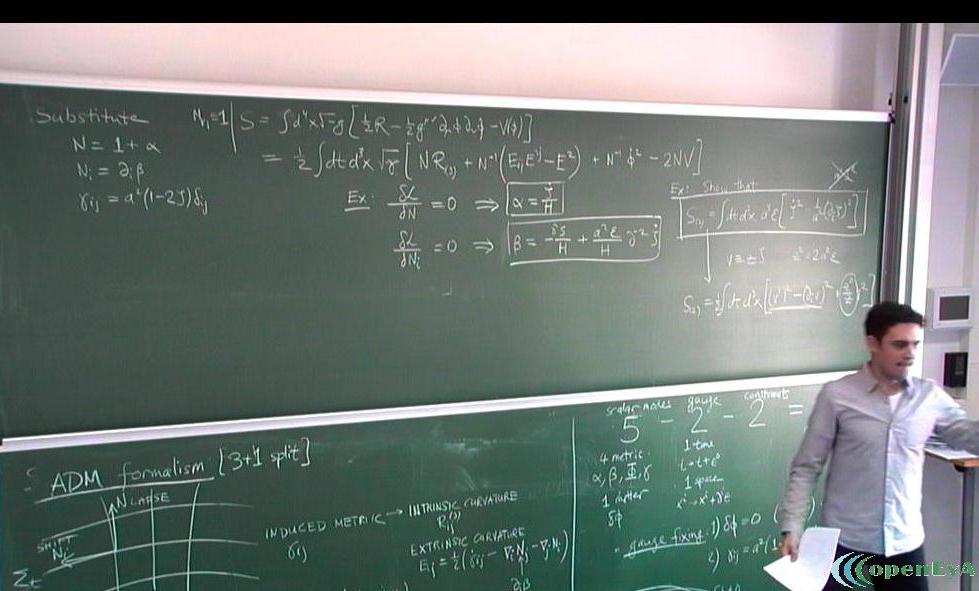 Substitute
N = 1 + α
N_i = ∂_i β
γ_ij = a²(1-2ζ)δ_ij
S = ∫d⁴x√-g [½R - ½g^μν ∂_μϕ ∂_νϕ - V(ϕ)]
= ½∫dt d³x √γ [NR_(3) + N⁻¹(E_ij E^ij - E²) + N⁻¹ ϕ̇² - 2NV]
Ex: δL/δN = 0 ⇒ α = ζ̇/H
δL/δN_i = 0 ⇒
Ex: Show that
S_(2) = ∫dt d³x a³ε [ζ̇² - 1/a²(∂_iζ)²]
z² = 2a²ε
ADM formalism [3+1 split]
N LAPSE
SHIFT
N_i
Σ_t
INDUCED METRIC → INTRINSIC CURVATURE
γ_ij
R_(3)
EXTRINSIC CURVATURE
E_ij = ½(γ̇_ij - ∇_iN_j - ∇_jN_i)
∂_iβ
scalar modes gauge constraint
5 - 2 - 2 =
4 metric
α, β, Φ, γ
1 matter
δϕ
1 time
t→t+ε⁰
1 space
gauge fixing: 1) δϕ = 0
2)
openEyA